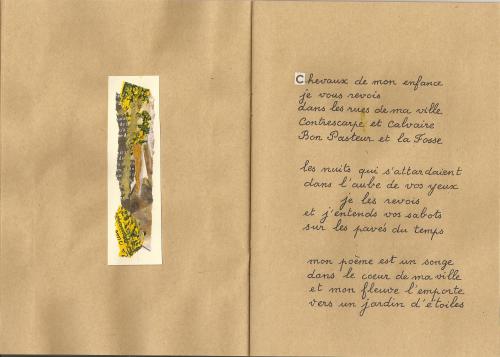 Chevaux de mon enfance
je vous revois
dans les rues de ma ville
Contrescarpe et Calvaire
Bon Pasteur et la Fosse
les nuits qui s'attardaient
dans l'aube de vos yeux
je les revois
et j'entends vos sabots
sur les pavés du temps
mon poème est un songe
dans le coeur de ma ville
et mon fleuve l'emporte
vers un jardin d'étoiles